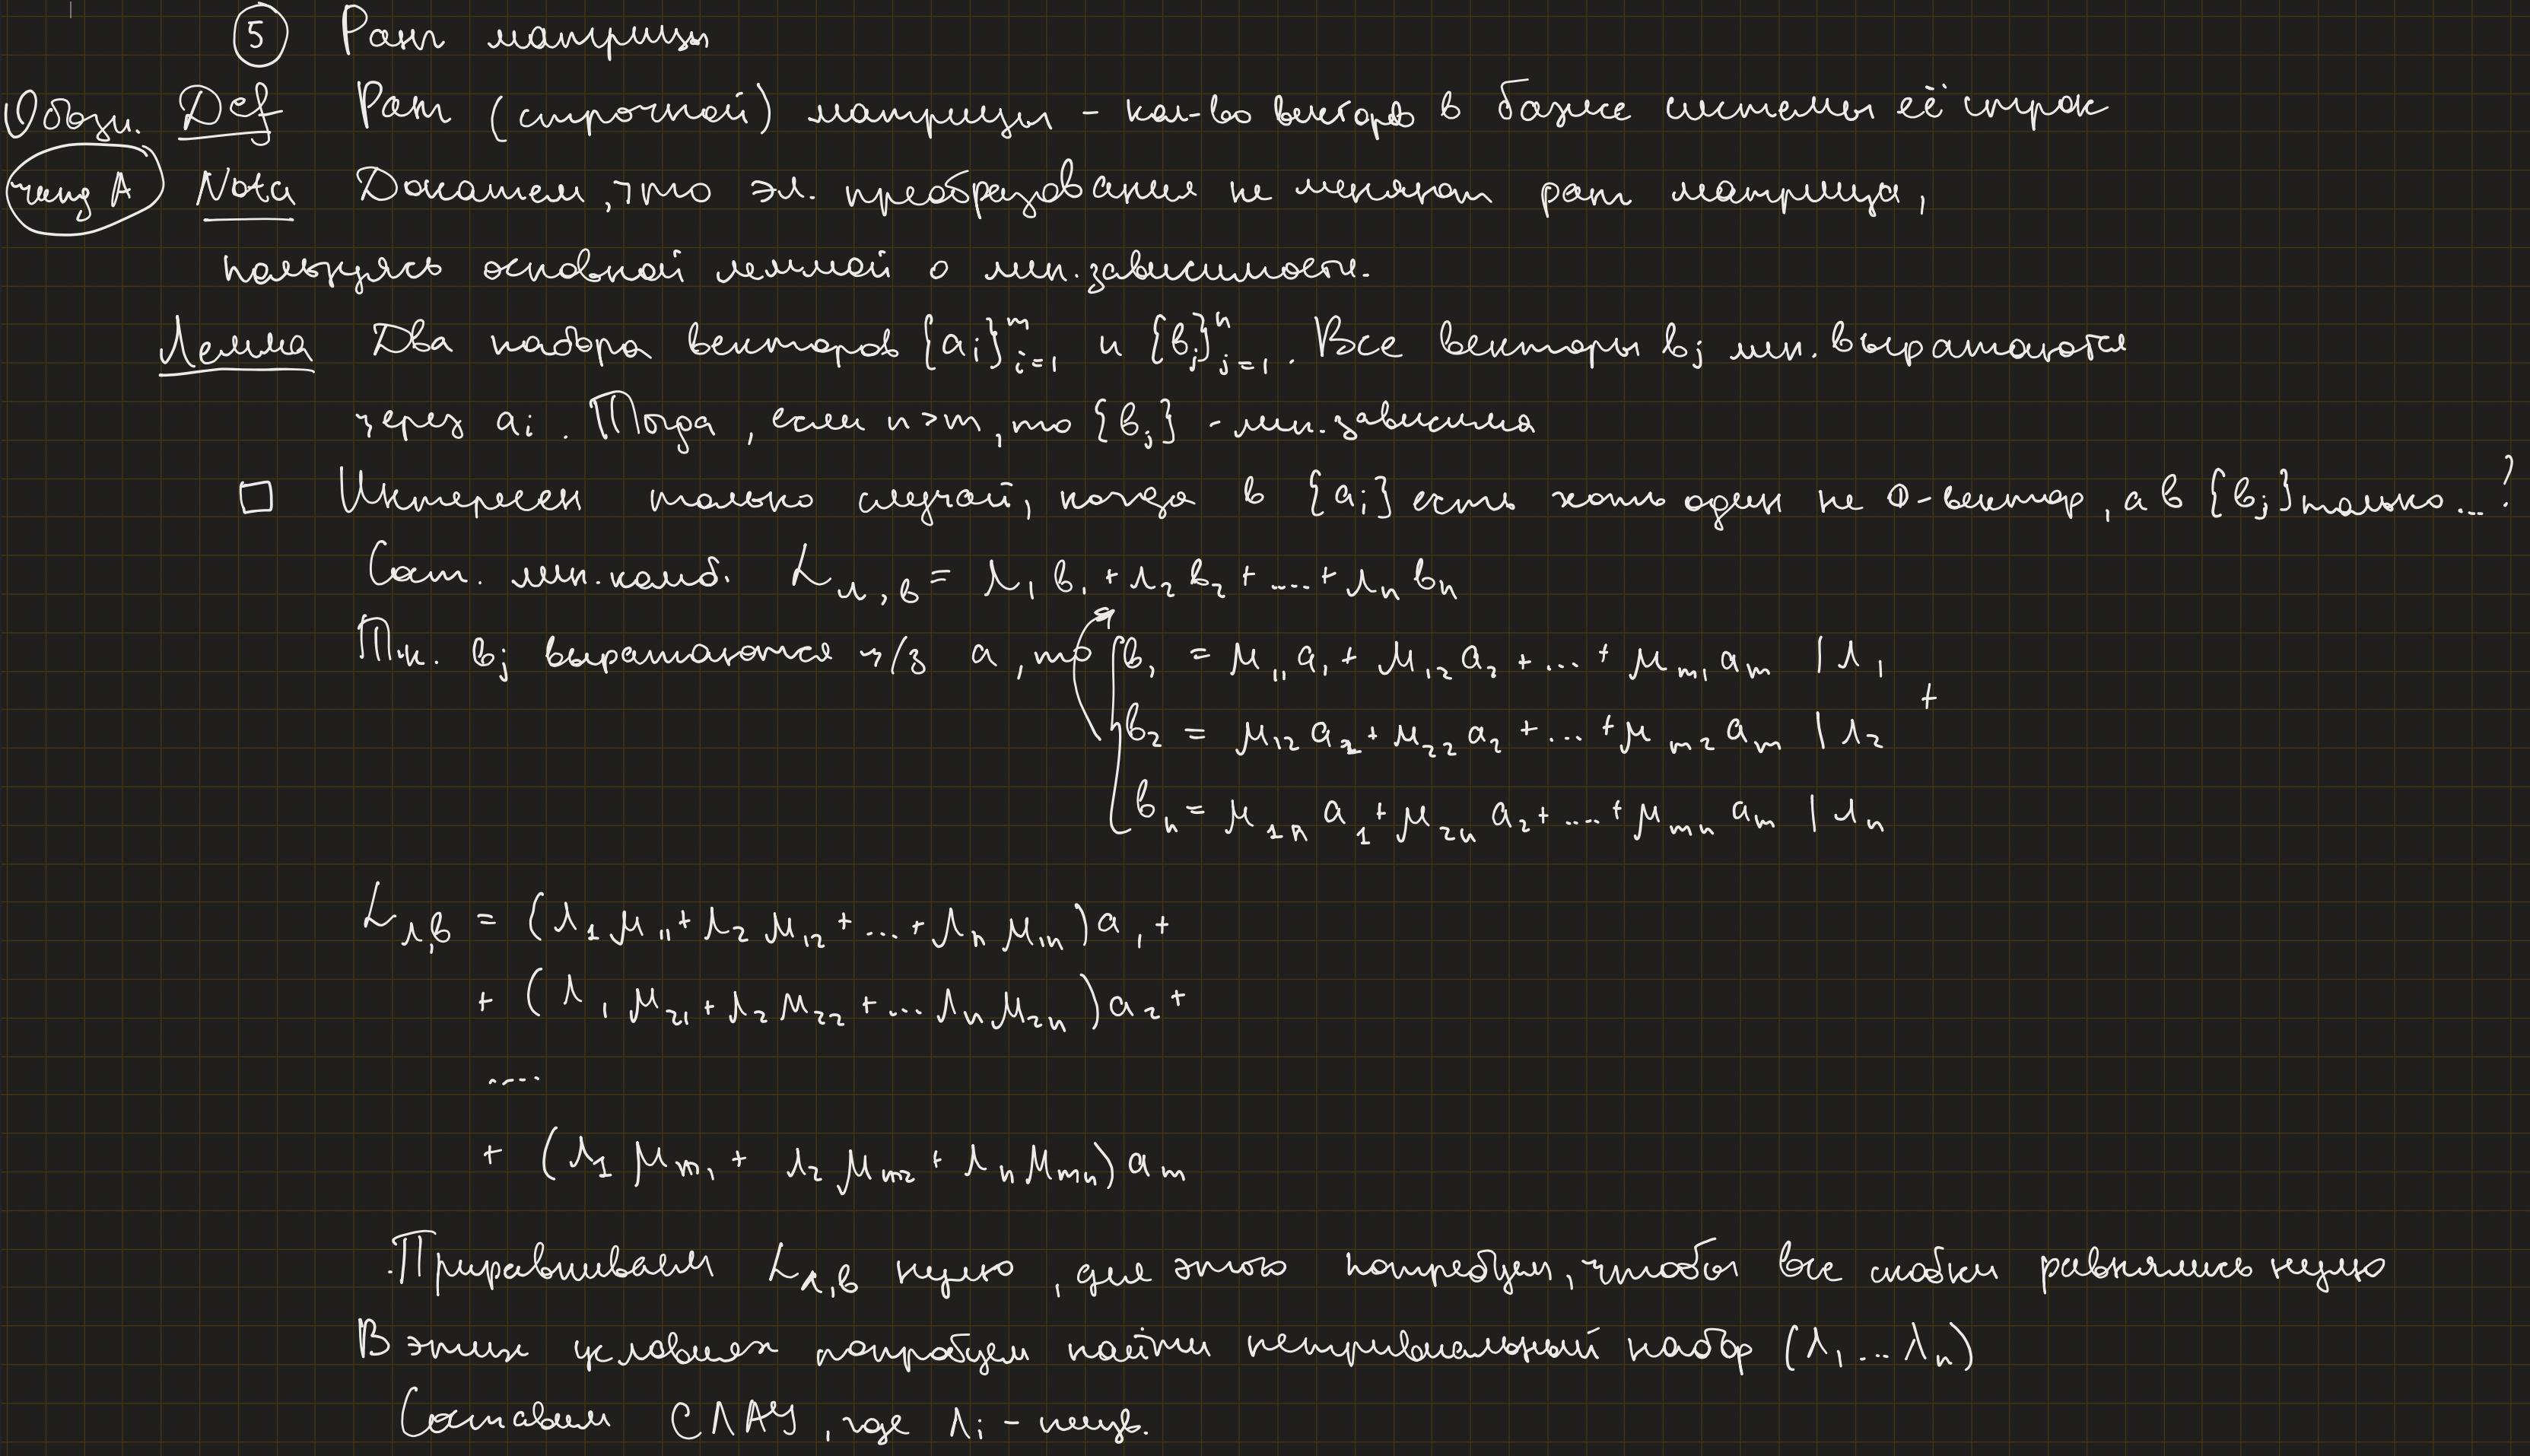 ⑤ Ранг матрицы
Обозн. Def Ранг (строчной) матрицы - кол-во векторов в базисе системы её строк
rang A Nota Докажем, что эл. преобразования не меняют ранг матрица,
пользуясь основной леммой о лин. зависимости.
Лемма Два набора векторов {aᵢ}ᵐᵢ₌₁ и {bⱼ}ⁿⱼ₌₁. Все векторы bⱼ лин. выражаются
через aᵢ. Тогда, если n>m, то {bⱼ} - лин. зависима
□ Интересен только случай, когда в {aᵢ} есть хоть один не 0-вектор, а в {bⱼ} только...?
Сост. лин. комб. L_{λ,b} = λ₁b₁ + λ₂b₂ + .... + λₙbₙ
Т.к. bⱼ выражаются ч/з a, то { b₁ = μ₁₁a₁ + μ₁₂a₂ + ... + μₘ₁aₘ | λ₁
b₂ = μ₁₂a₂ + μ₂₂a₂ + ... + μₘ₂aₘ | λ₂ +
bₙ = μ₁ₙa₁ + μ₂ₙa₂ + .... + μₘₙaₘ | λₙ
L_{λ,b} = (λ₁μ₁₁ + λ₂μ₁₂ + ... + λₙμ₁ₙ)a₁ +
+ (λ₁μ₂₁ + λ₂μ₂₂ + ... λₙμ₂ₙ)a₂ +
....
+ (λ₁μₘ₁ + λ₂μₘ₂ + λₙμₘₙ)aₘ
Приравниваем L_{λ,b} нулю, для этого потребуем, чтобы все скобки равнялись нулю
В этих условиях попробуем найти нетривиальный набор (λ₁ ... λₙ)
Составим СЛАУ, где λᵢ - неизв.